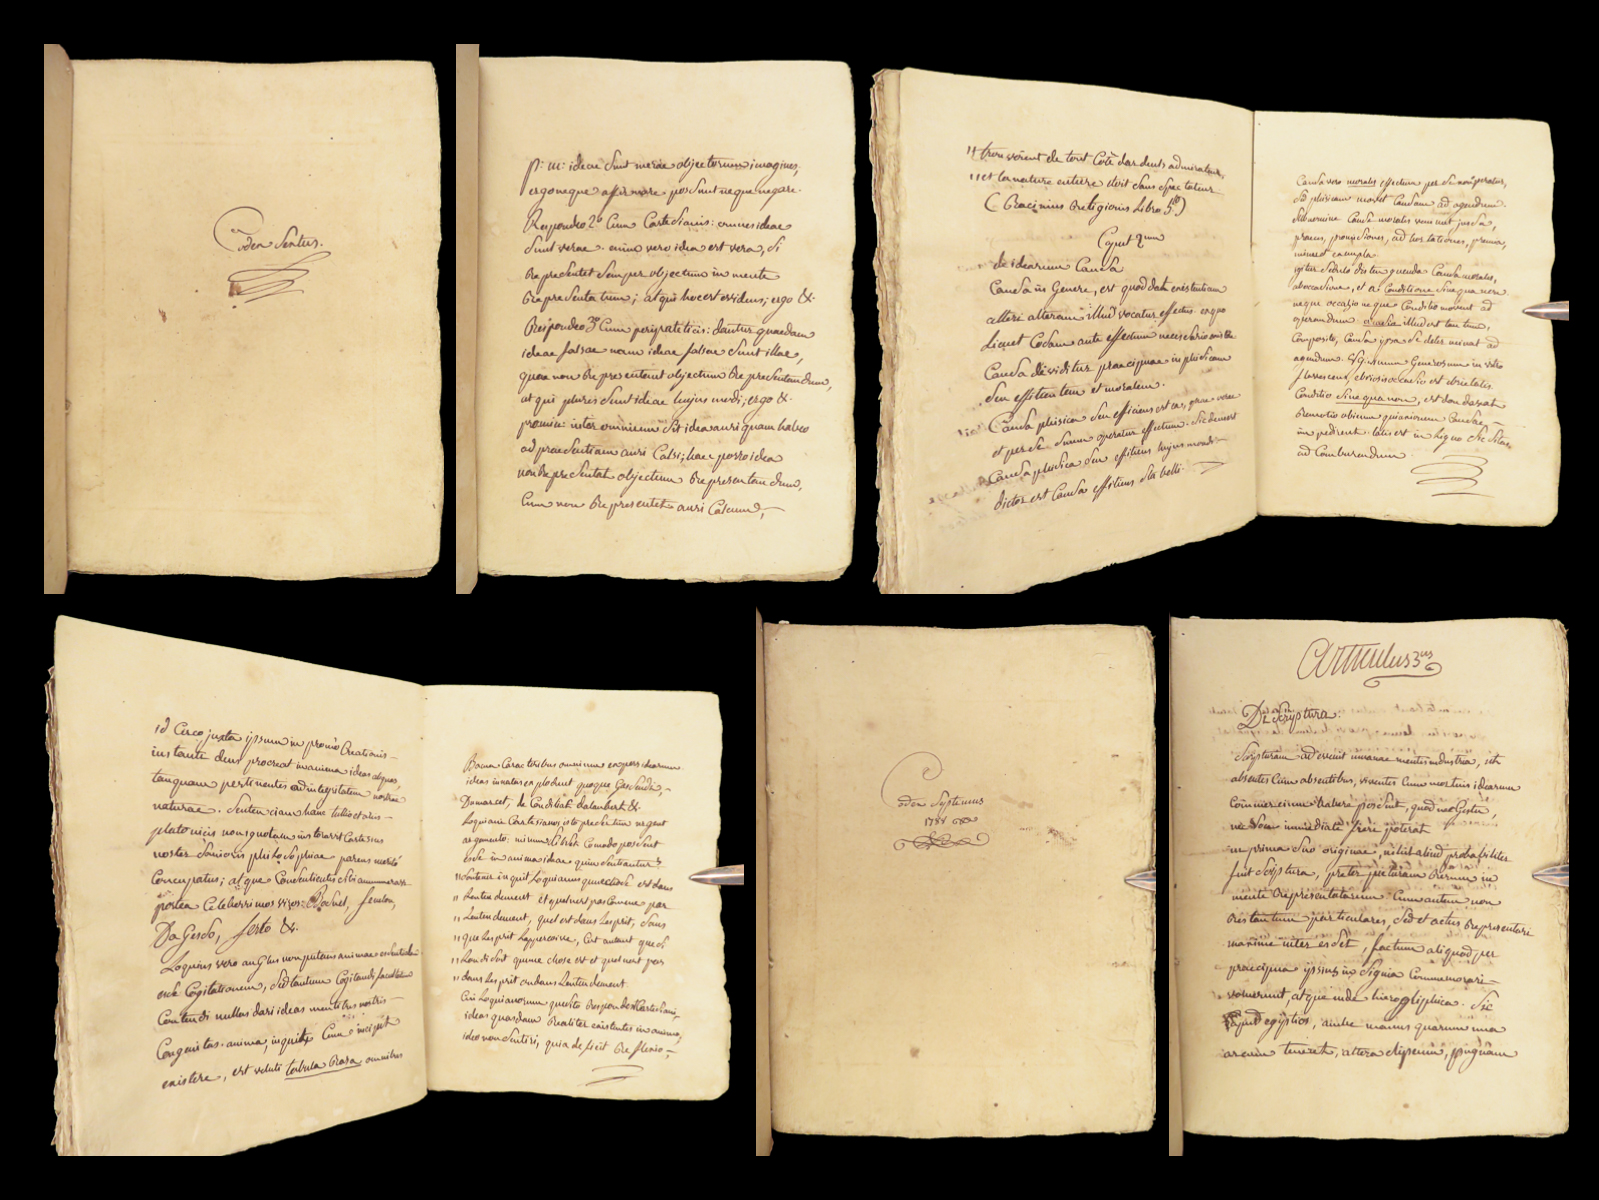 Codex Sextus.
P: m: ideae sunt merae objectorum imagines,
ergo neque affirmare possunt neque negare.
Respondeo 2° Cum Cartesianis: omnes ideae
sunt verae. enim vero idea est vera, si
repraesentet semper objectum in mente
repraesentatum; atqui hoc est evidens; ergo &.
Respondeo 3° Cum peripateticis: dantur quaedam
ideae falsae nam ideae falsae sunt illae,
quae non repraesentant objectum repraesentandum,
at qui plures sunt ideae hujus modi; ergo &.
promin: inter omnium sit idea auri quam habeo
ad praesentiam auri Calsi; haec porro idea
non repraesentat objectum repraesentandum,
Cum non repraesentet auri Calcum,
trouvèrent de tout Coté dardents admirateurs,
et la nature entière doit sans spectateur
(Racinius Religionis Libro 5to)
Caput 2um
de idearum Causa
Causa in Genere, est quod dat existentiam
alteri alteram illud vocatur effectus ex quo
liquet Causam ante effectum necessario existere
Causa dividitur praecipuae in phisicam
seu efficientem et moralem.
Causa phisica seu efficiens est ea, quae vere
et per se suum operatur effectum. Sic demost
Causa phisica seu efficiens hujus mundi
dictor est Causa efficiens sta belli.
Causa vero moralis effectum per se non operatur,
sed phisicam movet Causam ad agendum.
sub nomine Causae moralis veniunt jussa,
preces, promissiones, ad hortationes, premia,
minae et exempla
igitur sedulo distinguenda Causa moralis,
ab occasione, et a Conditione sine qua non
neque occasio neque Conditio movent ad
operandum. occasio illud est tantum,
Composito, Causa ipsa se determinat ad
agendum. V.g. summa Generosum in vitro
flavescens, ebriosis occasio est ebrietatis
Conditio sine qua non, est dandarat
remotio obicium quia nonum Causae
impedirent. talis est in ligno sic sitas
ad Comburendum.
id Circo juxta ipsum in primo Creationis
instante deus procreat in anima ideas aliquas,
tanquam pertinentes ad integritatem nostrae
naturae. Sententiam hanc tullio et aliis
platonicis non ignotam instauravit Cartesius
noster Sanioris philosophiae parens merito
nuncupatus; atque Consentientes sibi
postea Celeberrimos viros: Bossuet, fenelon,
Da Gesso, ferto &.
Loquius vero anglus non putans animae essentiam
esse Cogitationem, sed tantum Cogitandi facultatem
Contendi nullas dari ideas mentibus nostris
Congenitas. anima, inquit, Cum incipit
existere, est veluti tabula Rasa omnibus
Bona Caracteribus omnium expers idearum
ideas innatas explodunt quoque Gassendi,
Dumarcet, de Condilat, dalambert &.
Loquiani Cartesianos isto praesertim urgent
argumento: nimirum si Credi Comodo possunt
esse in anima ideae quin sentiantur?
soutenir inquit Loquianus qu'une chose est dans
lentendement et quelle n'est pas Connue par
lentendement, quel est dans lesprit, sans
que lesprit lapperçoive, Cest autant que si
lon disoit quune chose est et quelle n'est pas
dans lesprit ou dans lentendement
Cui Loquianorum questio respondet Cartesiani,
ideas quasdam Realiter existentes in anima,
ideo non sentiri, quia deficit Reflexio,
Codex Septimus
1788
Articulus 3us
De Scriptura.
Scripturam ad evenit humanae mentis industria, ut
absentes Cum absentibus, viventes Cum mortuis idearum
Commercium habere possent, quod nec Gestu,
nec Sono immediate fieri poterat
in prima suo origine, nihil aliud probabiliter
fuit Scriptura, praeter picturam rerum in
mente repraesentatarum Cum autem non
res tantum particulares, sed et actus repraesentari
maxime inter esset, factum aliquod per
praecipua ipsius in Signia Commemorari
voluerunt, atque inde hieroglyphica. Sic
apud egiptios, ambae manus quarum una
arcum teneret, altera clipeum, pugnam